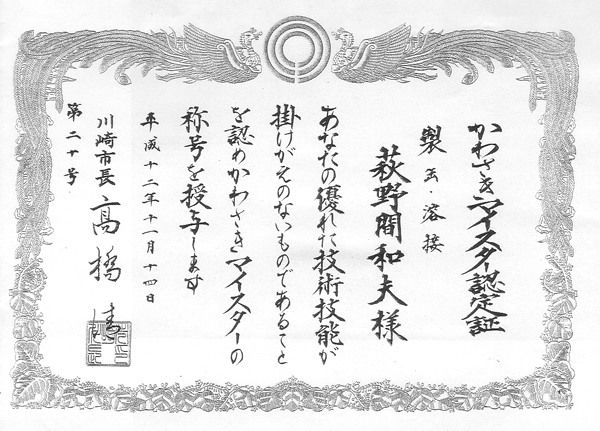 かわさきマイスター認定証
製缶・溶接
萩野間和夫様
あなたの優れた技術技能が
掛けがえのないものであること
を認めかわさきマイスターの
称号を授与します
平成十二年十一月十四日
川崎市長 高橋清
第二十号